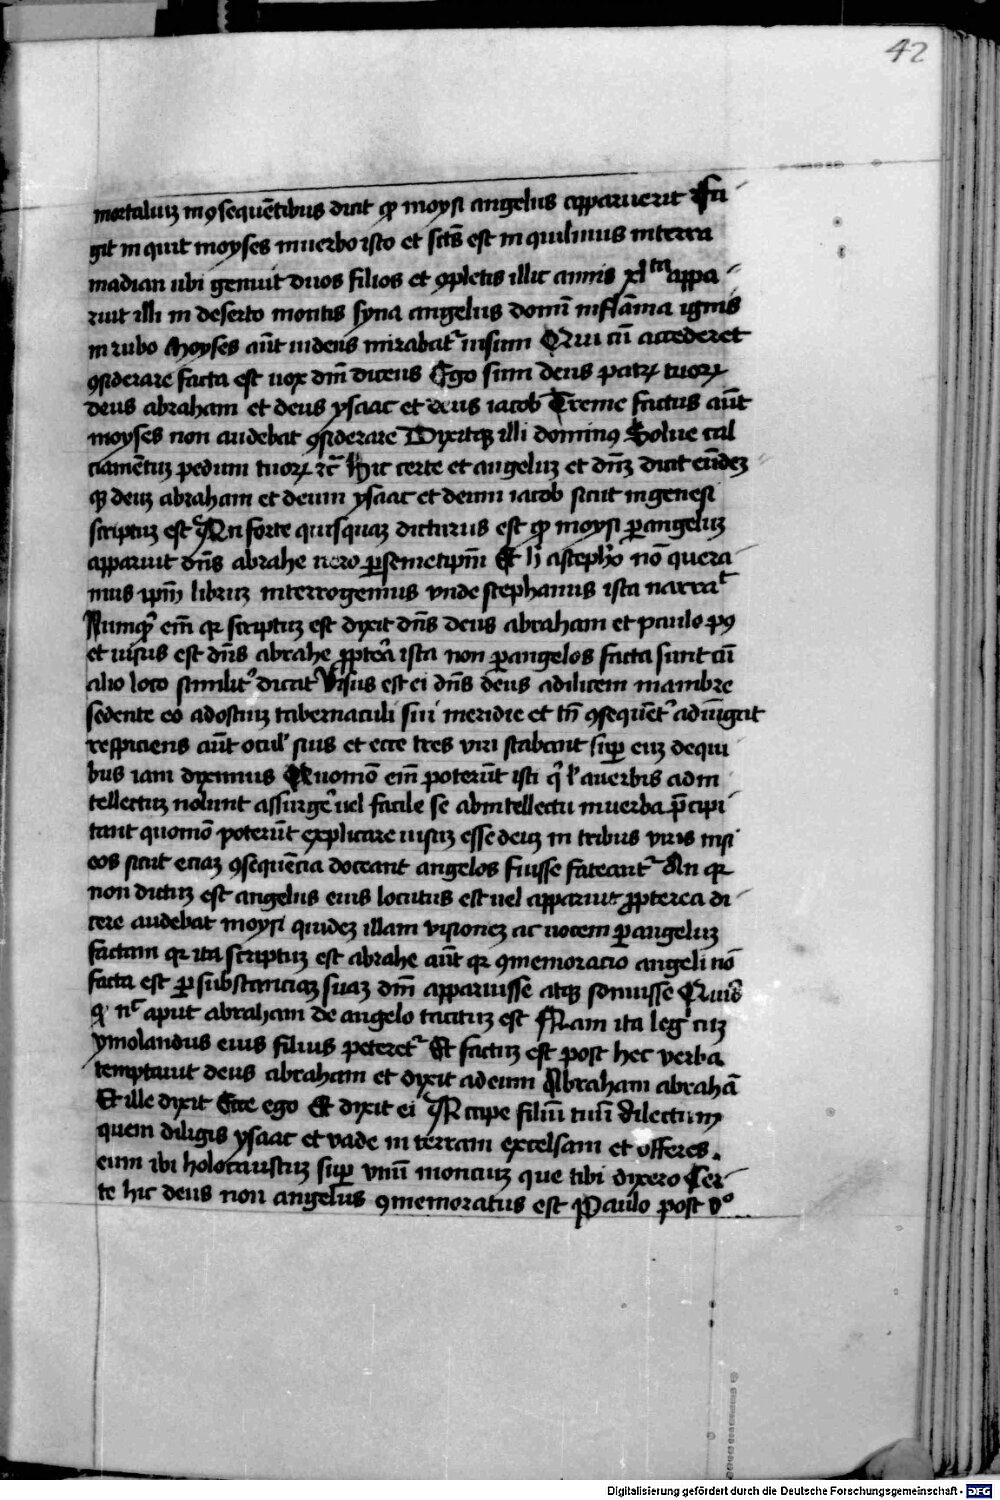 42
mortaliuȝ in ꝯsequētibus dicit ꝙ moysi angelus apparuerit Fu
git in quit moyses in uerbo isto et fctūs est in quilinus in terra
madian ubi genuit duos filios et ꝯpletis illic annis xl^ta appa
ruit illi in deserto montis syna angelus domī in flāma ignis
in rubo Moyses aūt uidens mirabatᷣ uisum Qui cū accederet
ꝯsiderare facta est uox dm̄ dicens Ego sum deus patrꝝ tuorꝝ
deus abraham et deus ysaac et deus iacob Treme factus aūt
moyses non audebat ꝯsiderare Dixitqȝ illi dominꝰ Solue cal
ciamētuȝ pedum tuorꝝ ⁊c̄ Hic certe et angeluȝ et dn̄ȝ dicit eūdeȝ
qȝ deuȝ abraham et deum ysaac et deum iacob sicut in genesi
scriptuȝ est An forte quisquaȝ dicturus est ꝙ moysi ꝑ angeluȝ
apparuit dn̄s abrahe uero ꝑ semetipm̄ Et h̄ a stephāo nō quera
mus ipm̄ libruȝ interrogemus vnde stephanus ista narrat
Numqͥd em̄ qꝛ scriptuȝ est dixit dn̄s deus abraham et paulo pꝰ
et uisus est dn̄s abrahe ꝓpterͣ ista non ꝑ angelos facta sunt cū
alio loco similitᷣ dicat Uisus est ei dn̄s deus ad ilicem mambre
sedente eo ad ostiuȝ tabernaculi sui meridie et tn̄ ꝯsequēt᷒ adiūgat
respiciens aūt ocul᷒ suis et ecce tres viri stabant suꝑ euȝ de qui
bus iam diximus Quomō em̄ poterūt isti qͥ l̓ a uerbis ad in
tellectuȝ nolunt assurge᷒ uel facile se ab intellectu in uerba p̄cipi
tant quomō poterūt explicare uisuȝ esse deuȝ in tribus viris nisi
eos sicut eciaȝ ꝯsequēcia doceant angelos fuisse fateantᷣ An qꝛ
non dictuȝ est angelus eius locutus est uel apparuit ꝓpterea di
cere audebat moysi quideȝ illam visioneȝ ac uocem ꝑ angeluȝ
factam qꝛ ita scriptuȝ est abrahe aūt qꝛ ꝯmemoracio angeli nō
facta est ꝑ substanciaȝ suaȝ dm̄ apparuisse atqȝ sonuisse Quid
qͥ nᶜ aput abraham de angelo tacituȝ est Nam ita leg᷒ cuȝ
ymolandus eius filius peteretᷣ Et factuȝ est post hec verba
temptauit deus abraham et dixit ad eum Abraham abrahā
Et ille dixit Ecce ego Et dixit ei Accipe filiū tuū dilectum
quem diligis ysaac et vade in terram excelsam et offeres
eum ibi holocaustuȝ suꝑ vnū monciuȝ que tibi dixero Cer
te hic deus non angelus ꝯmemoratus est Paulo post vͦ
Digitalisierung gefördert durch die Deutsche Forschungsgemeinschaft - DFG